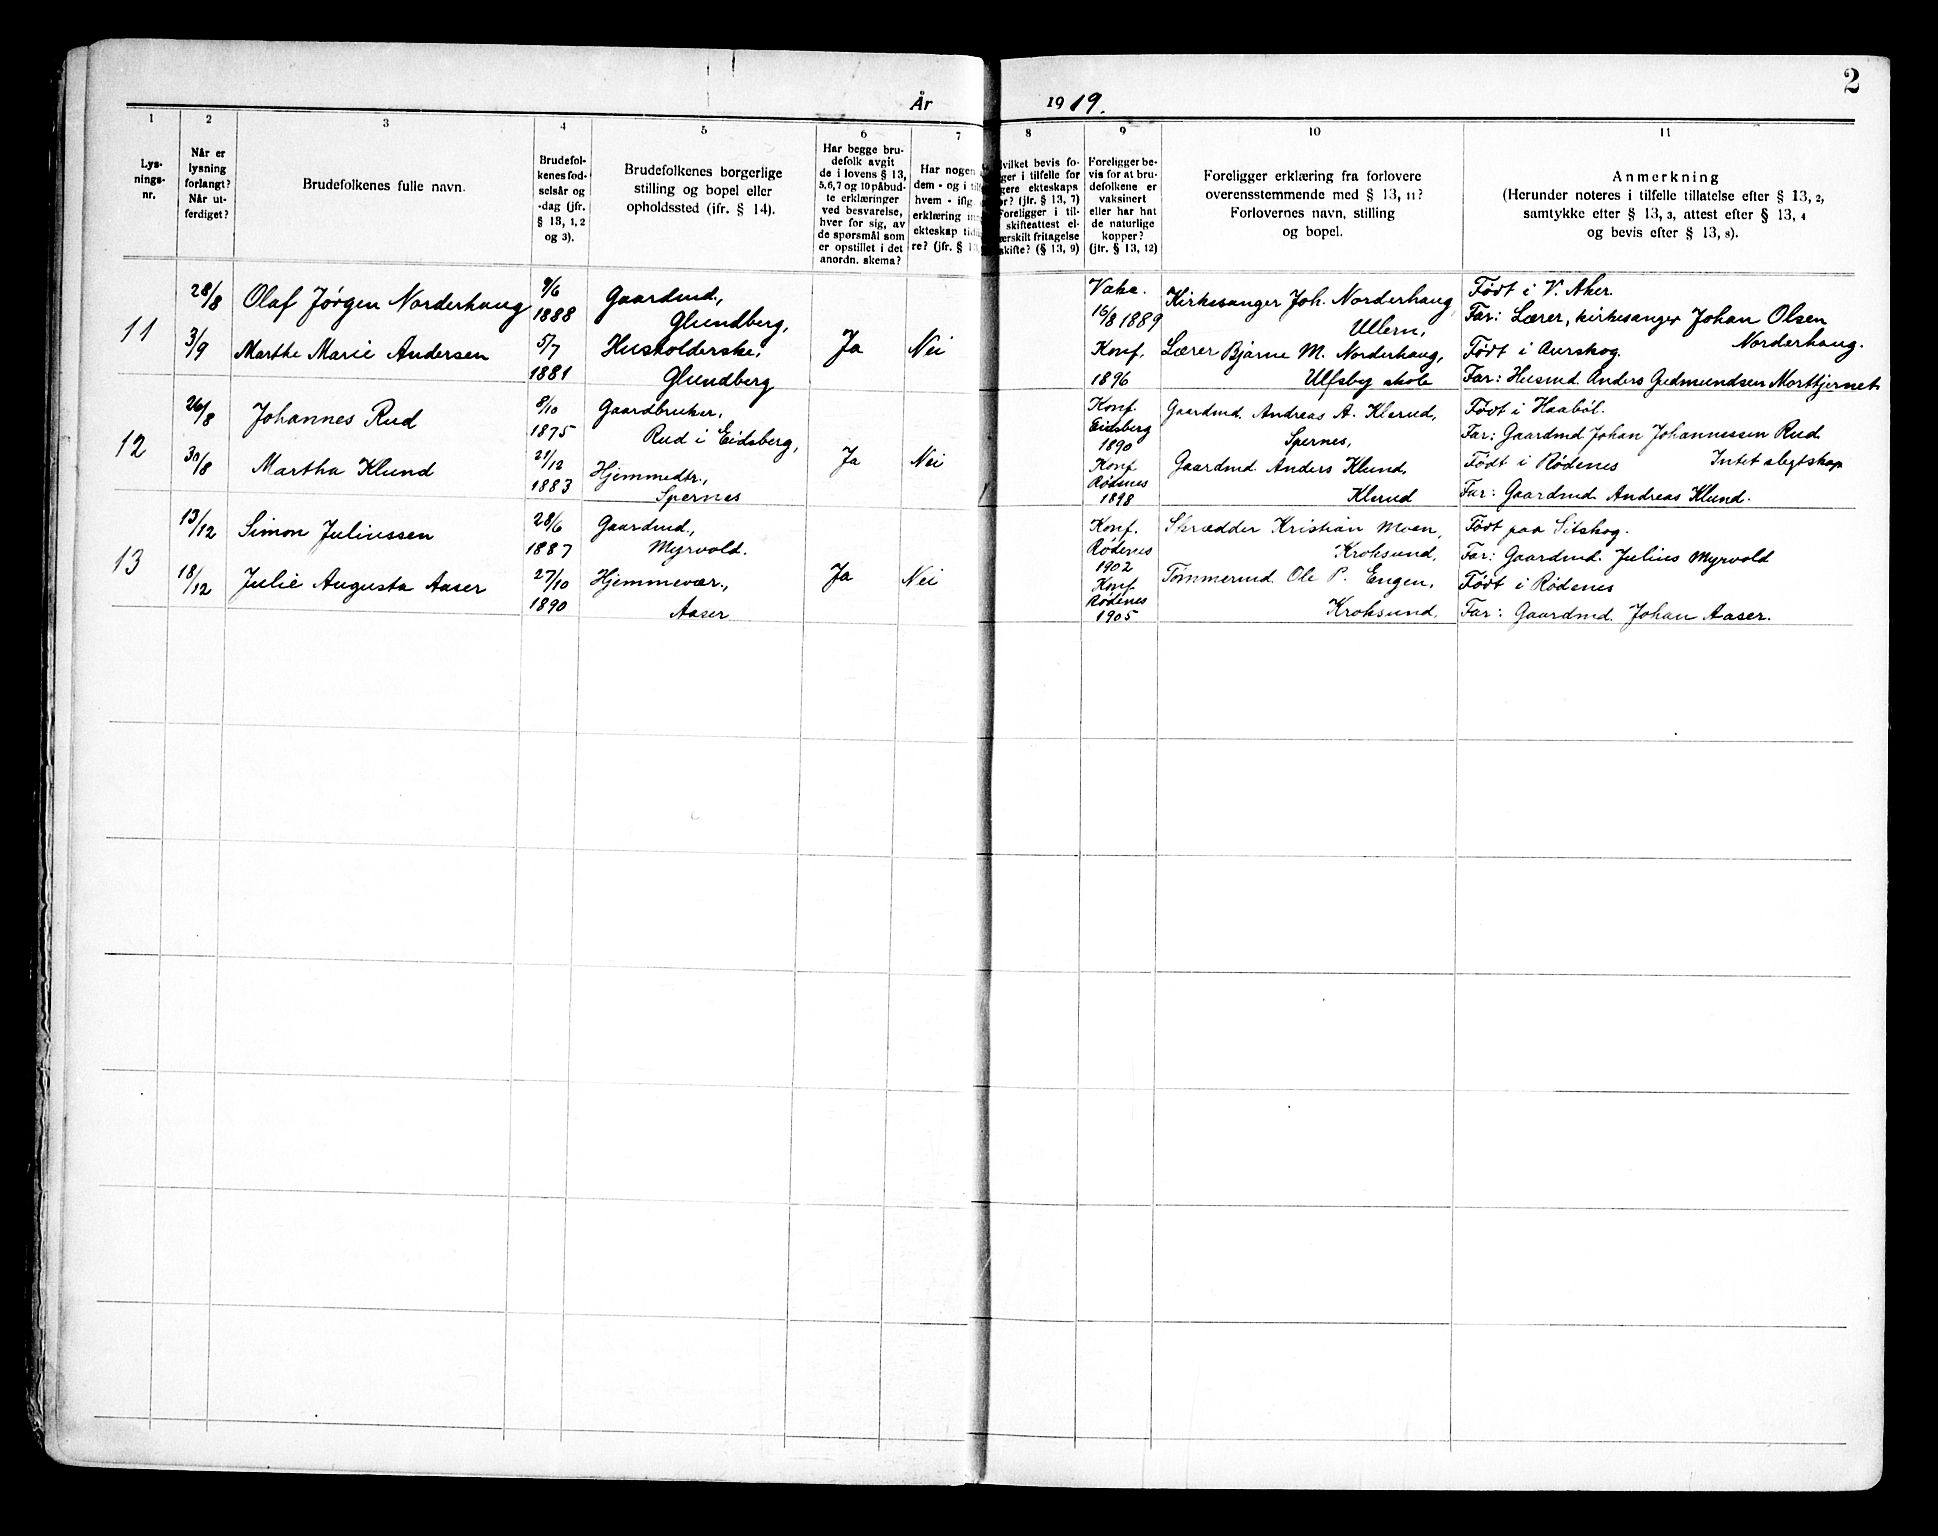 2
År 1919.
1 2 3 4 5 6 7 8 9 10 11
Lys-
nings-
nr.
Når er
lysning
forlangt?
Når ut-
ferdiget?
Brudefolkenes fulle navn.
Brudefol-
kenes fød-
selsår og
-dag (jfr.
§ 13, 1, 2
og 3).
Brudefolkenes borgerlige
stilling og bopel eller
opholdssted (jfr. § 14).
Har begge bru-
defolk avgit
de i lovens § 13,
5,6,7 og 10 påbud-
te erklæringer
ved besvarelse,
hver for sig, av
de spørsmål som
er opstillet i det
anordn. skema?
Har nogen
dem - og i tilf
hvem - isfg.
erklæring in
ekteskap tidl
re? (jfr. § 13,
vilket bevis fo-
ger i tilfelle for
gere ekteskaps
or? (jfr. § 13, 7)
Foreligger i til-
skifteattest el-
ærskilt fritagelse
skifte? (§ 13, 9)
Foreligger be-
vis for at bru-
defolkene er
vaksinert
eller har hat
de naturlige
kopper?
(jfr. § 13, 12)
Foreligger erklæring fra forlovere
overensstemmende med § 13, 11?
Forlovernes navn, stilling
og bopel.
Anmerkning
(Herunder noteres i tilfelle tillatelse efter § 13, 2,
samtykke efter § 13, 3, attest efter § 13, 4
og bevis efter § 13, 8).
11
28/8
3/9
Olaf Jørgen Norderhaug
Marthe Marie Andersen
9/6
1888
5/7
1881
Gaardmd.,
Glundberg,
Husholderske,
Glundberg
Ja
Nei
Vakc.
16/8 1889
Konf.
1896
Kirkesanger Joh. Norderhaug,
Ullern,
Lærer Bjarne M. Norderhaug,
Ulfsby skole
Født i V. Aker.
Far: Lærer, kirkesanger Johan Olsen
Norderhaug.
Født i Aurskog.
Far: Husmd. Anders Gudmundsen Morttjernet
12
26/8
30/8
Johannes Rud
Martha Klund
8/10
1875
21/12
1883
Gaardbruker,
Rud i Eidsberg,
Hjemmedtr.,
Spernes
Ja
Nei
Konf.
Eidsberg
1890
Konf
Rødenes
1898
Gaardmd. Andreas A. Klerud,
Spernes,
Gaardmd. Anders Klund,
Klerud
Født i Haabøl.
Far: Gaardmd Johan Johannessen Rud
Født i Rødenes Intet slegtskap
Far: Gaardmd. Andreas Klund.
13
13/12
18/12
Simon Juliussen
Julie Augusta Aaser
28/6
1887
27/10
1890
Gaardmd,
Myrvold.
Hjemmevær.,
Aaser
Ja
Nei
Konf.
Rødenes
1902
Konf.
Rødenes
1905
Skrædder Kristian Moen,
Kroksund,
Tømmermd. Ole P. Engen,
Kroksund.
Født paa Sitskog.
Far: Gaardmd. Julius Myrvold
Født i Rødenes
Far: Gaardmd. Johan Aaser.